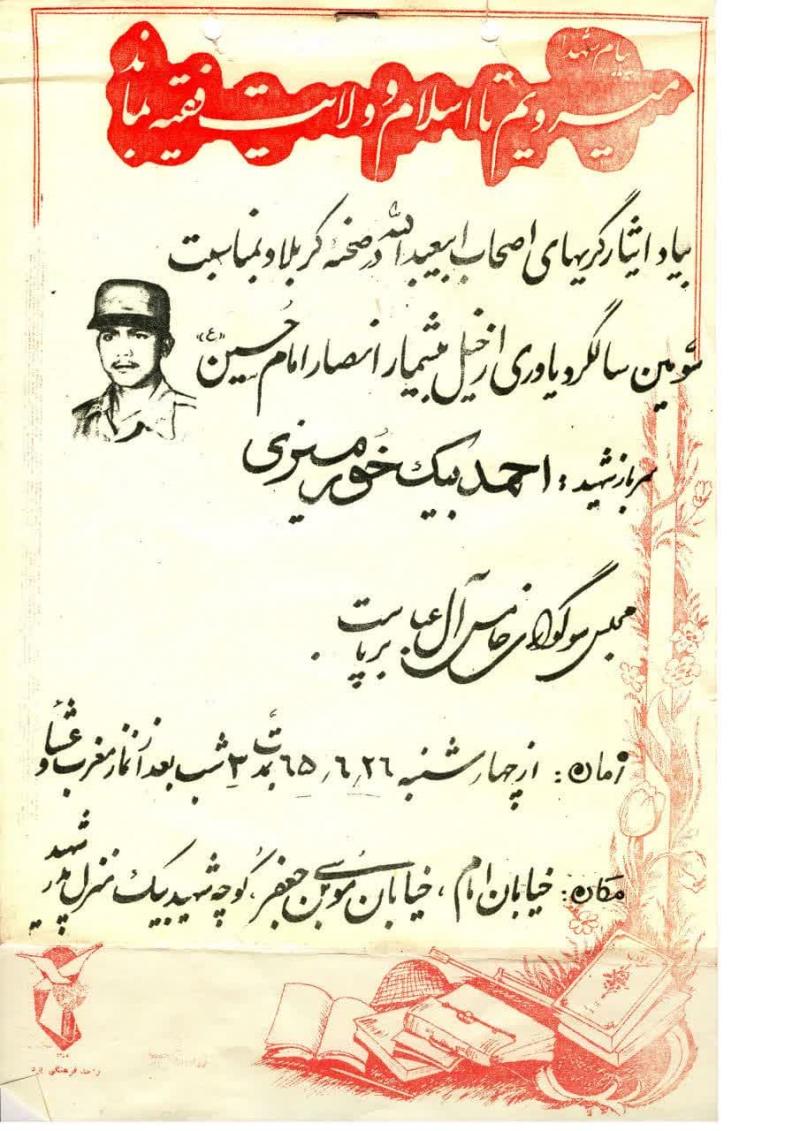 پیام شهدا
میرویم تا اسلام و ولایت فقیه بماند
بیاد ایثارگریهای اصحاب ابیعبدالله در صحنه کربلا و بمناسبت
سومین سالگرد یاوری از خیل بیشمار انصار امام حسین «ع»
سرباز شهید: احمد بیک خورمیزی
مجلس سوگواری خامس آل عبا برپاست.
زمان: از چهارشنبه ۶۵/۶/۲۶ بمدت ۳ شب بعد از نماز مغرب و عشاء
مکان: خیابان امام، خیابان موسی بن جعفر، کوچه شهید بیک منزل پدر شهید
واحد فرهنگی یزد